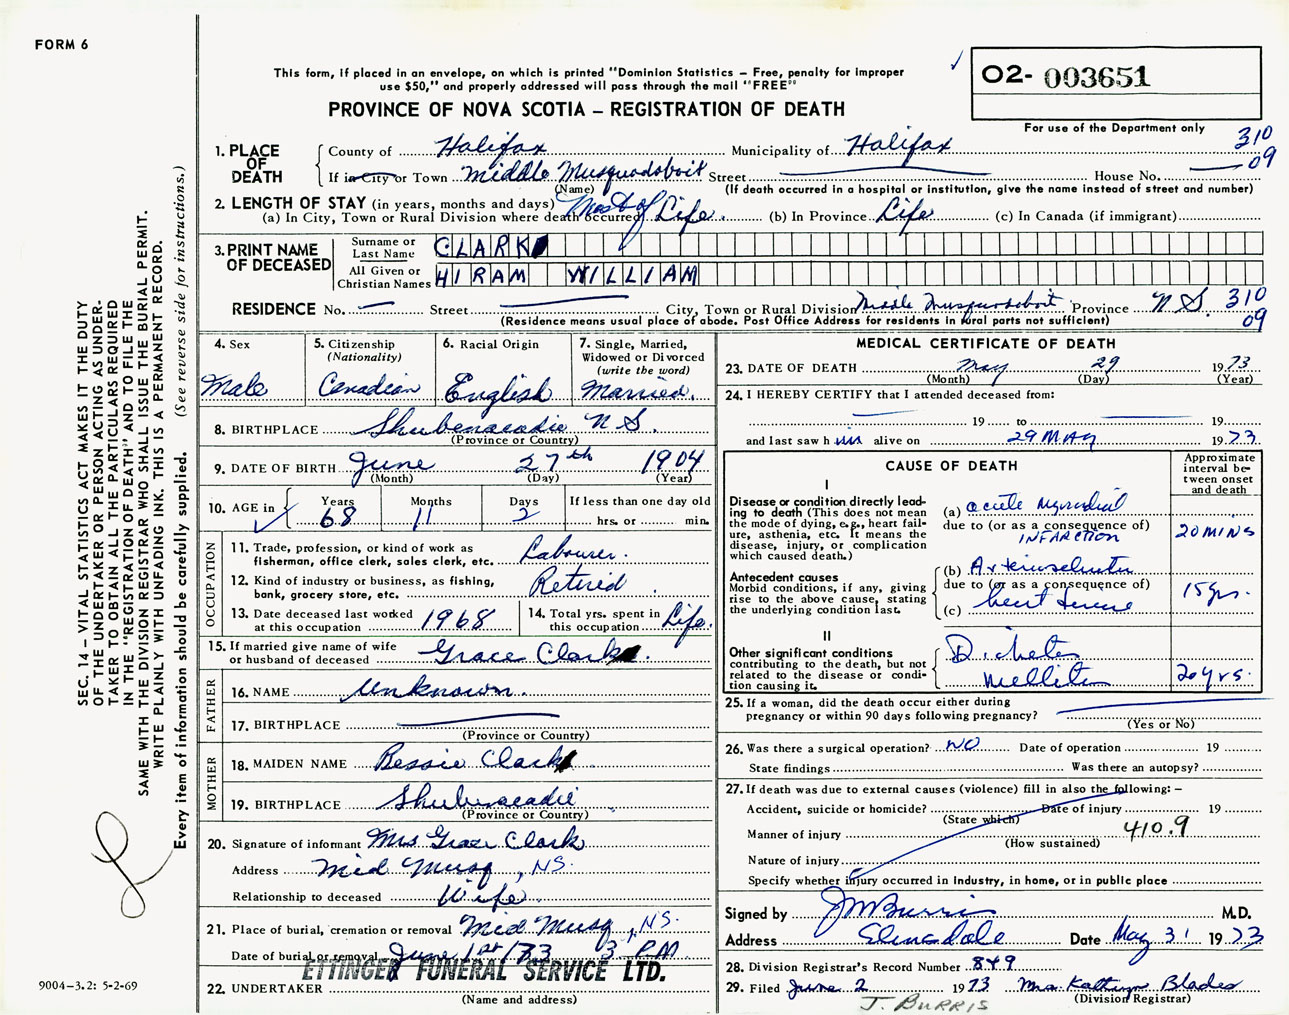 FORM 6
This form, if placed in an envelope, on which is printed "Dominion Statistics – Free, penalty for improper
use $50," and properly addressed will pass through the mail "FREE"
PROVINCE OF NOVA SCOTIA – REGISTRATION OF DEATH
02- 003651
For use of the Department only
310
09
1. PLACE OF DEATH County of Halifax Municipality of Halifax
If in City or Town Middle Musquodoboit Street House No.
(Name) (If death occurred in a hospital or institution, give the name instead of street and number)
2. LENGTH OF STAY (in years, months and days)
(a) In City, Town or Rural Division where death occurred Most of Life (b) In Province Life (c) In Canada (if immigrant)
3. PRINT NAME OF DECEASED
Surname or Last Name CLARK
All Given or Christian Names HIRAM WILLIAM
RESIDENCE No. Street City, Town or Rural Division Middle Musquodoboit Province N.S. 310
09
(Residence means usual place of abode. Post Office Address for residents in rural parts not sufficient)
4. Sex Male
5. Citizenship (Nationality) Canadian
6. Racial Origin English
7. Single, Married, Widowed or Divorced (write the word) Married.
8. BIRTHPLACE Shubenacadie N S.
(Province or Country)
9. DATE OF BIRTH June 27th 1904
(Month) (Day) (Year)
10. AGE in Years 68 Months 11 Days 2 If less than one day old
hrs. or min.
OCCUPATION
11. Trade, profession, or kind of work as fisherman, office clerk, sales clerk, etc. Labourer.
12. Kind of industry or business, as fishing, bank, grocery store, etc. Retired
13. Date deceased last worked at this occupation 1968
14. Total yrs. spent in this occupation Life.
15. If married give name of wife or husband of deceased Grace Clark.
FATHER
16. NAME Unknown.
17. BIRTHPLACE
(Province or Country)
MOTHER
18. MAIDEN NAME Bessie Clark
19. BIRTHPLACE Shubenacadie
(Province or Country)
20. Signature of informant Mrs Grace Clark
Address Mid Musq, NS.
Relationship to deceased Wife
21. Place of burial, cremation or removal Mid Musq, NS.
Date of burial or removal June 1st/73 3 P.M.
ETTINGER FUNERAL SERVICE LTD.
22. UNDERTAKER
(Name and address)
MEDICAL CERTIFICATE OF DEATH
23. DATE OF DEATH May 29 1973
(Month) (Day) (Year)
24. I HEREBY CERTIFY that I attended deceased from:
19 to 19
and last saw him alive on 29 MAY 1973
CAUSE OF DEATH
Approximate interval between onset and death
I
Disease or condition directly leading to death (This does not mean the mode of dying, e.g., heart failure, asthenia, etc. It means the disease, injury, or complication which caused death.)
(a) acute myocardial
due to (or as a consequence of)
INFARCTION 20 MINS
Antecedent causes
Morbid conditions, if any, giving rise to the above cause, stating the underlying condition last.
(b) Arteriosclerotic
due to (or as a consequence of)
(c) heart disease 15 yrs.
II
Other significant conditions
contributing to the death, but not related to the disease or condition causing it.
Diabetes
Mellitus 20 yrs.
25. If a woman, did the death occur either during
pregnancy or within 90 days following pregnancy?
(Yes or No)
26. Was there a surgical operation? NO Date of operation 19
State findings Was there an autopsy?
27. If death was due to external causes (violence) fill in also the following: –
Accident, suicide or homicide? Date of injury 19
(State which)
Manner of injury 410.9
(How sustained)
Nature of injury
Specify whether injury occurred in industry, in home, or in public place
Signed by J M Burris M.D.
Address Elmsdale Date May 31 1973
28. Division Registrar's Record Number 849
29. Filed June 2 1973 Mrs. Kathryn Blades
(Division Registrar)
J. BURRIS
SEC. 14 – VITAL STATISTICS ACT MAKES IT THE DUTY
OF THE UNDERTAKER OR PERSON ACTING AS UNDER-
TAKER TO OBTAIN ALL THE PARTICULARS REQUIRED
IN THE "REGISTRATION OF DEATH" AND TO FILE THE
SAME WITH THE DIVISION REGISTRAR WHO SHALL ISSUE THE BURIAL PERMIT.
WRITE PLAINLY WITH UNFADING INK. THIS IS A PERMANENT RECORD.
Every item of information should be carefully supplied. (See reverse side for instructions.)
9004-3.2: 5-2-69